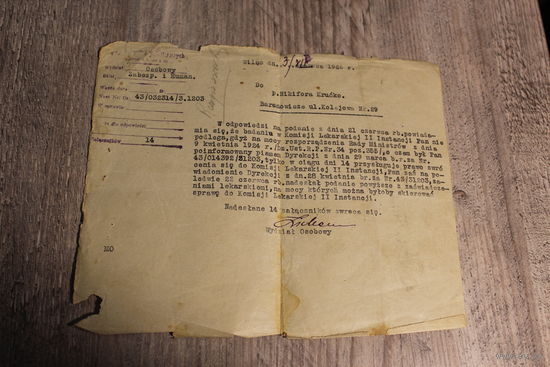 Osobowy
Zabezp. i Human.
43/032314/3.1203
14
Wilno dn. 3/VII 192 r.
Do
p.Nikifora Krućko.
Baranowicze ul.Kolejowa Nr.29
W odpowiedzi na podanie z dnia 21 czerwca rb.powiada-
mia się, że badaniu w Komisji Lekarskiej II Instancji Pan nie
podlega, gdyż na mocy rozporządzenia Rady Ministrów z dnia
9 kwietnia 1924 r. Dz.Ust.R.P.Nr.34 poz.355/,o czem był Pan
poinformowany pismem Dyrekcji z dnia 29 marca b.r.za Nr.
43/014392/31203,tylko w ciągu dni 14 przysługuje prawo zwró
cenia się do Komisji Lekarskiej II Instancji,Pan zaś na po-
wiadomienie Dyrekcji z dn.28 kwietnia br.za Nr.43/31203,za-
ledwie 22 czerwca rb.nadesłał podanie powyższe z zaświadcze-
niami lekarskiemi,na mocy których można byłoby skierować
sprawę do Komisji Lekarskiej II Instancji.
Nadesłane 14 załączników zwraca się.
Wydział Osobowy
MO